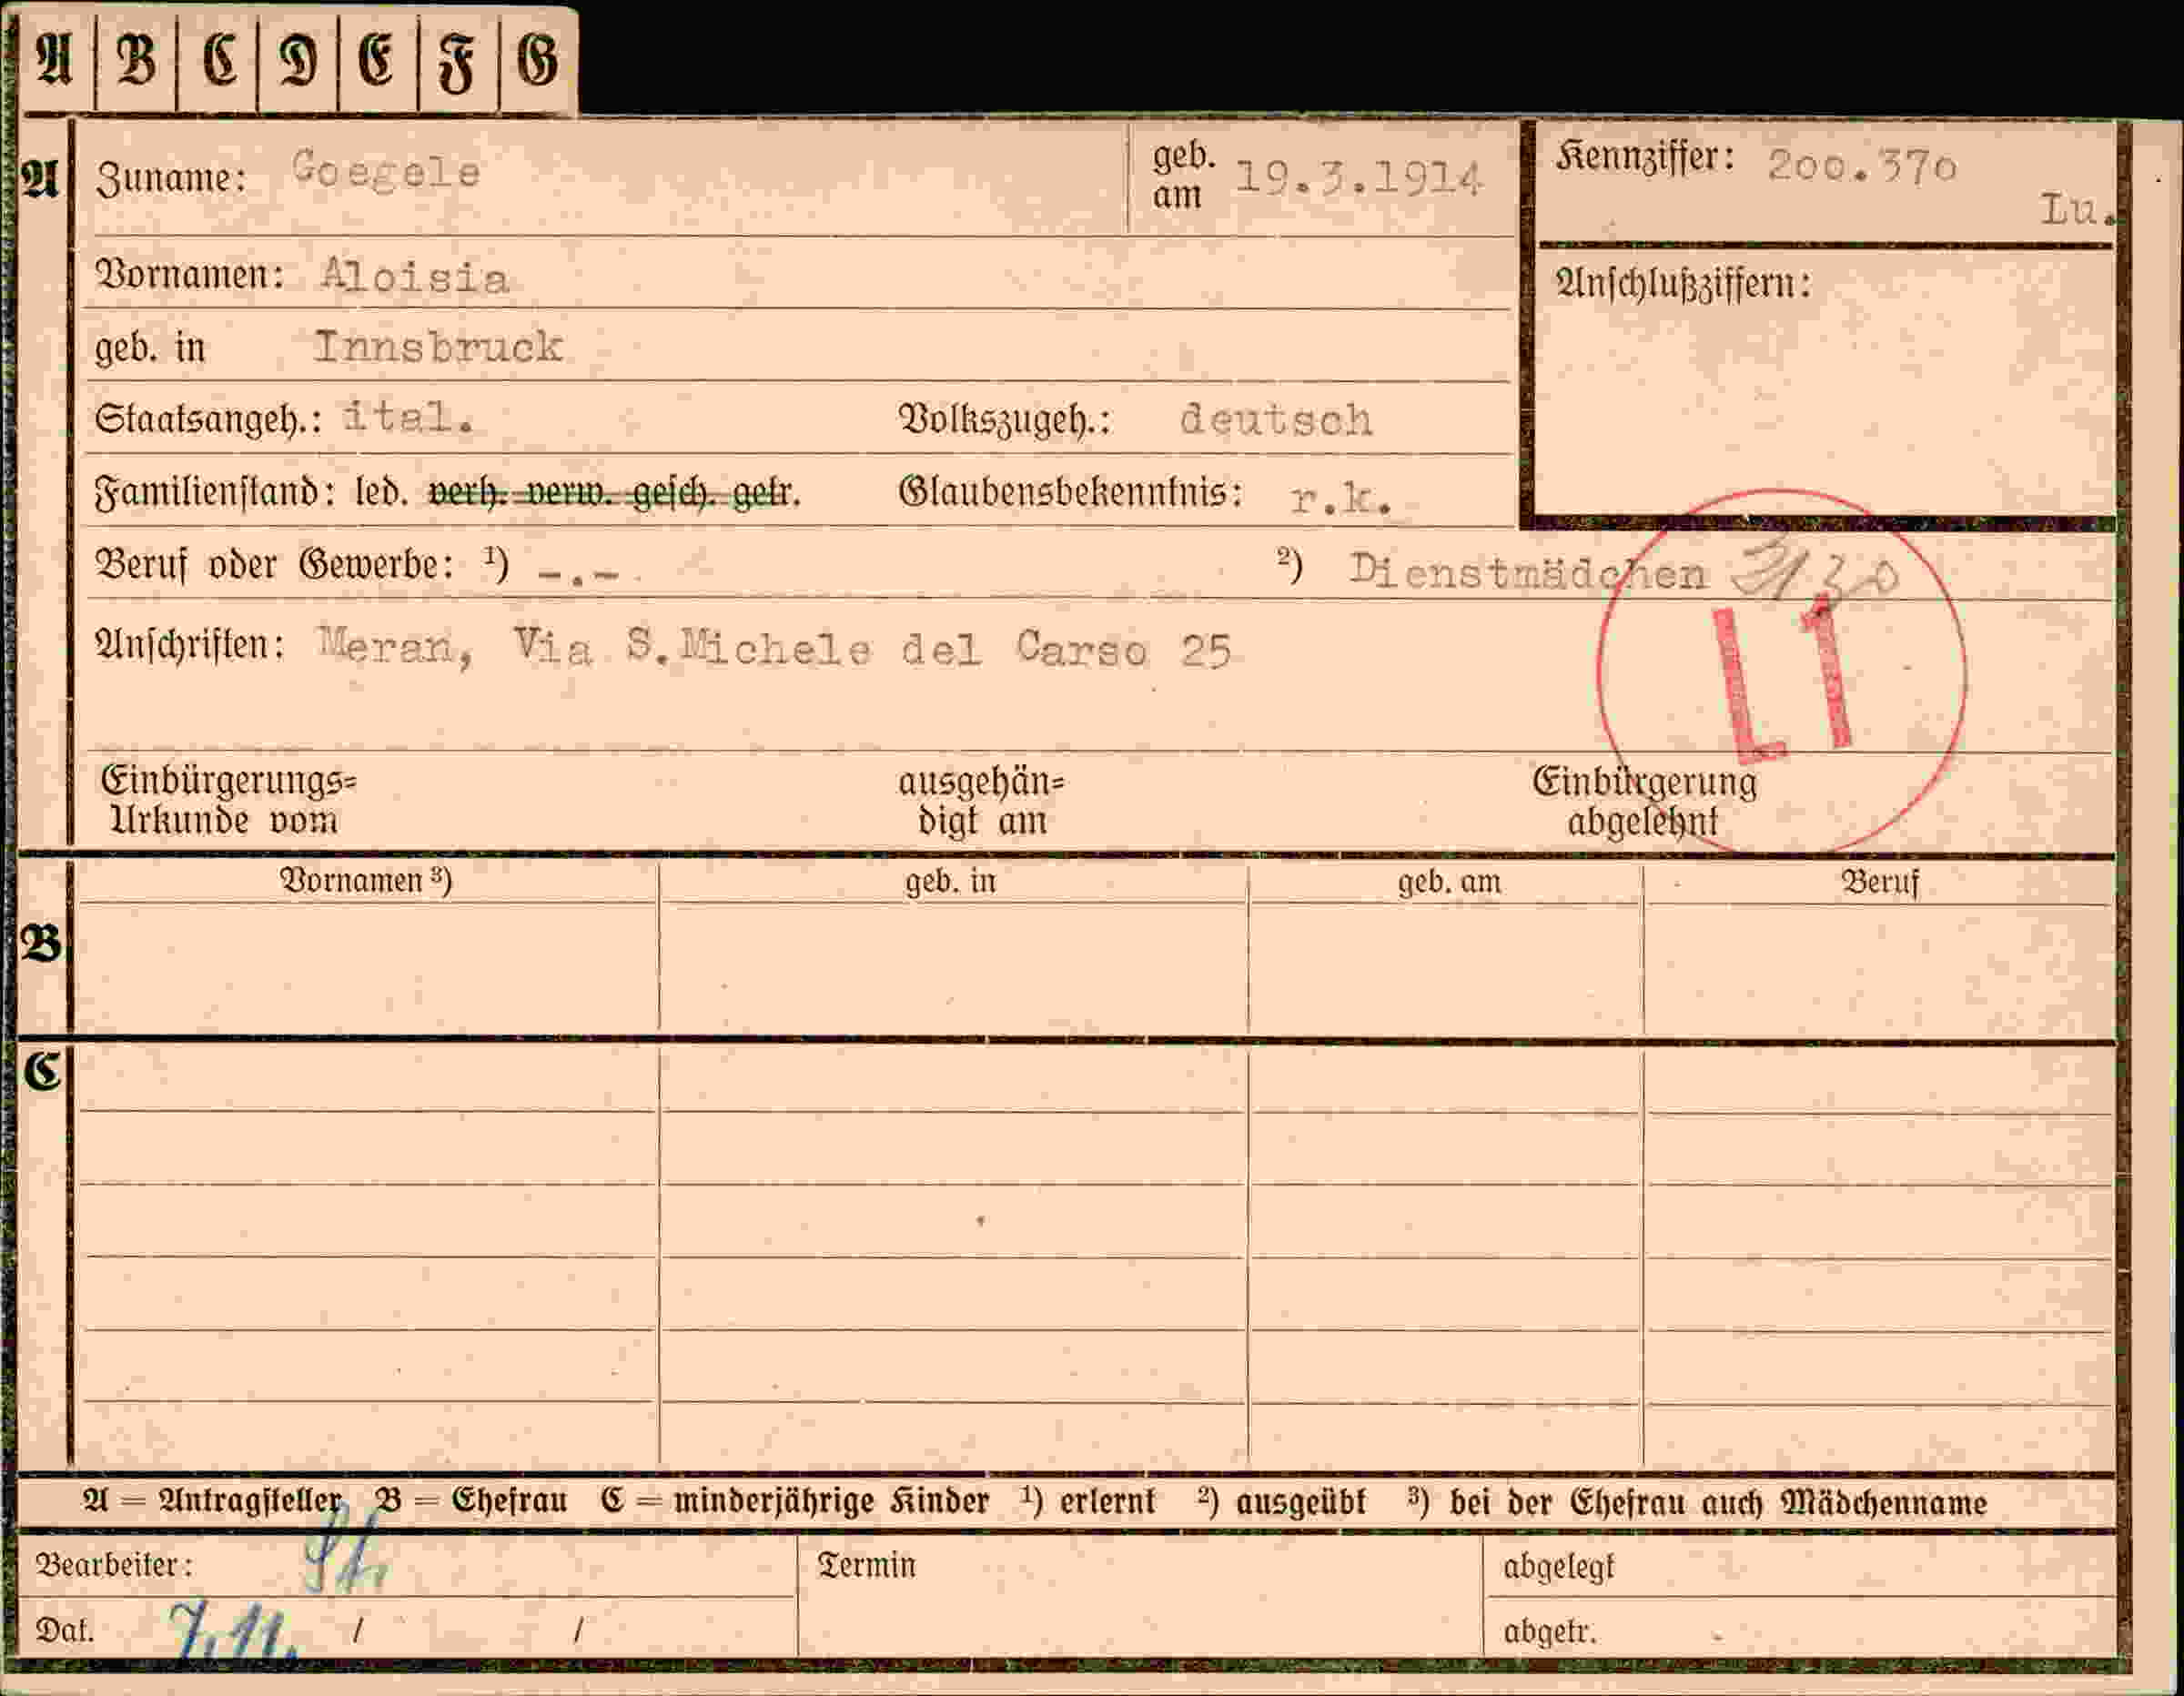 A B C D E F G
A Zuname: Goegele geb. am 19.3.1914 Kennziffer: 200.370
Lu.
Vornamen: Aloisia Anschlußziffern:
geb. in Innsbruck
Staatsangeh.: ital. Volkszugeh.: deutsch
Familienstand: led. verh. verw. gesch. getr. Glaubensbekenntnis: r.k.
Beruf oder Gewerbe: ¹) -.- ²) Dienstmädchen
Anschriften: Meran, Via S.Michele del Carso 25
L1
Einbürgerungs= ausgehän= Einbürgerung
Urkunde vom digt am abgelehnt
Vornamen ³) geb. in geb. am Beruf
B
C
A = Antragsteller B = Ehefrau C = minderjährige Kinder ¹) erlernt ²) ausgeübt ³) bei der Ehefrau auch Mädchenname
Bearbeiter: Termin abgelegt
Dat. 7.11. / / abgetr.